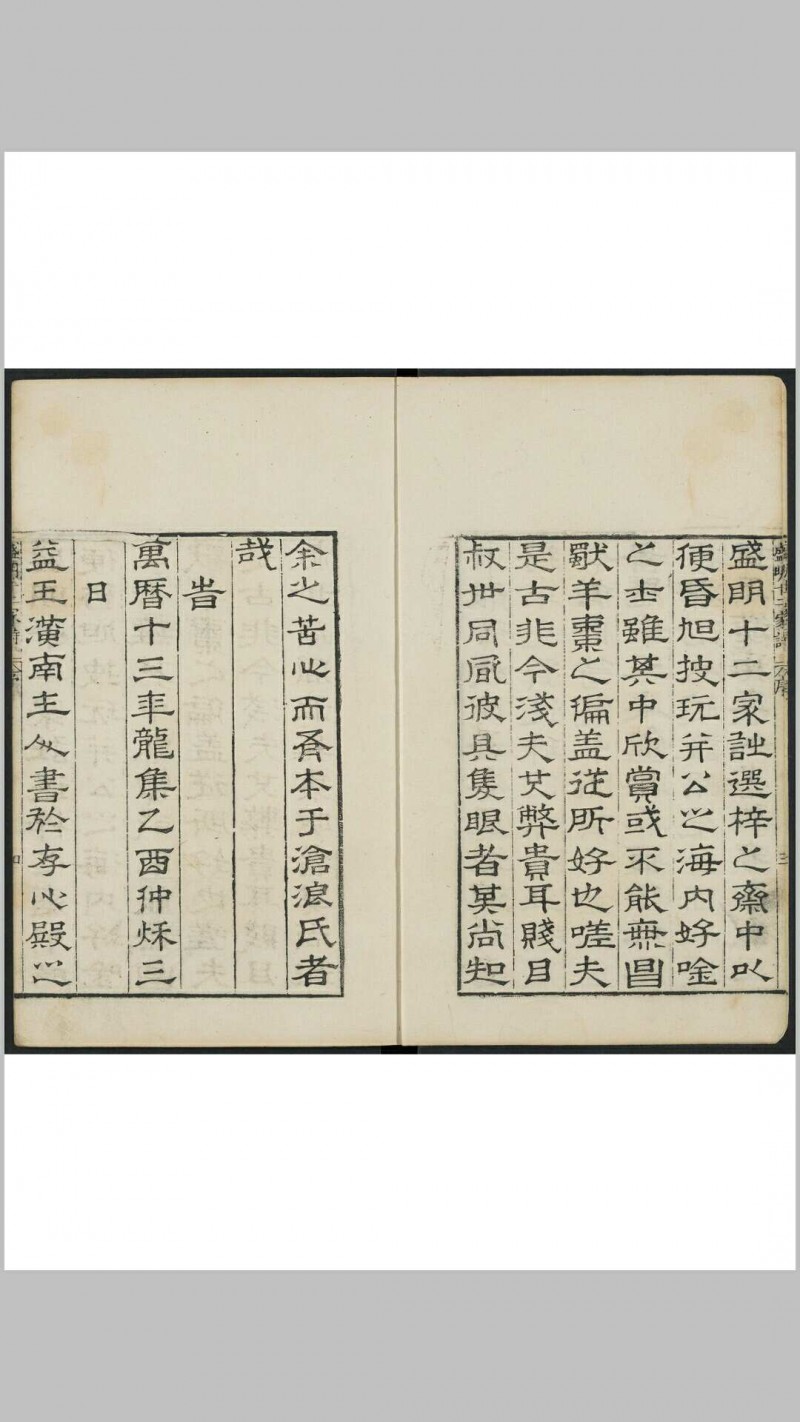 盛明十二家詩選梓之齋中以
便昏旭披玩并公之海内好唫
之士雖其中欣賞或不能無昌
歜羊棗之偏盖從所好也嗟夫
是古非今淺夫弊貴耳賤目
叔世同風彼具隻眼者其尚知
余之苦心而本于滄浪氏者
哉
旹
萬暦十三年龍集乙酉仲秋三
日
益王潢南主人書於存心殿之